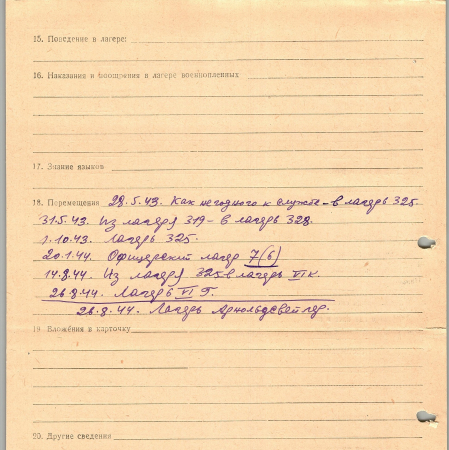 15. Поведение в лагере:
16. Наказания и поощрения в лагере военнопленных
17. Знание языков
18. Перемещения 29.5.43. Как негодного к службе - в лагерь 325.
31.5.43. Из лагеря 319 - в лагерь 328.
1.10.43. Лагерь 325.
20.1.44. Офицерский лагерь 7(6)
14.8.44. Из лагеря 325 в лагерь VI K.
26.8.44. Лагерь VI G.
26.8.44. Лагерь Арнольдсвейлер.
19. Вложения в карточку
20. Другие сведения